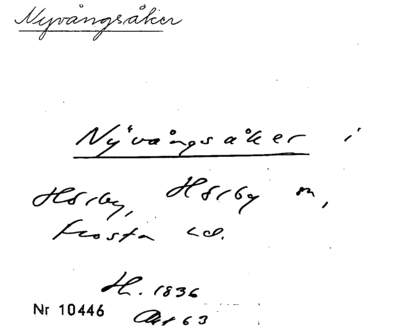 Nyvångsåker
Nyvångsåker i
Hörby, Hörby sn,
Frosta hd.
H. 1836
Akt 63
Nr 10446